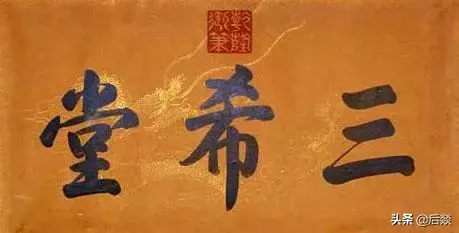 乾隆御筆
三希堂
头条 @后燚